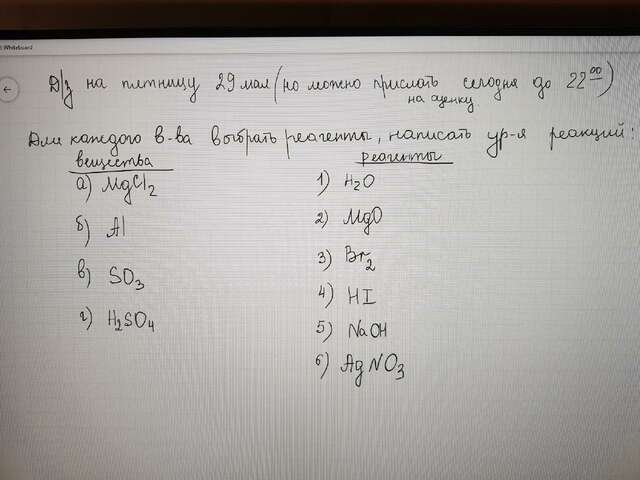 Whiteboard
Д/з на пятницу 29 мая (но можно прислать сегодня до 22⁰⁰)
на оценку
Для каждого в-ва выбрать реагенты, написать ур-я реакций:
вещества
реагенты
а) MgCl₂
1) H₂O
б) Al
2) MgO
в) SO₃
3) Br₂
г) H₂SO₄
4) HI
5) NaOH
6) AgNO₃